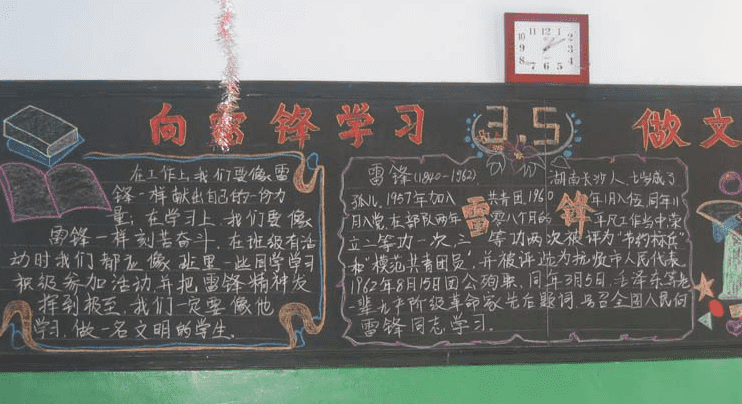 向雷锋学习
3.5
做文
在工作上,我们要像雷
锋一样献出自己的一份力
量,在学习上,我们要像
雷锋一样刻苦奋斗,在班级有活
动时我们都应像班里一些同学学习
积极参加活动并把雷锋精神发
挥到极至,我们一定要像他
学习,做一名文明的学生.
雷锋(1940-1962),湖南长沙人,七岁成了
孤儿,1957年加入共青团,1960年1月入伍,同年11
月入党,在部队两年零八个月的平凡工作当中,荣
立二等功一次,三等功两次被评为“节约标兵”
和“模范共青团员”,并被评选为抚顺市人民代表.
1962年8月15日因公殉职.同年3月5日,毛泽东等老
一辈无产阶级革命家先后题词,号召全国人民向
雷锋同志学习.
雷锋